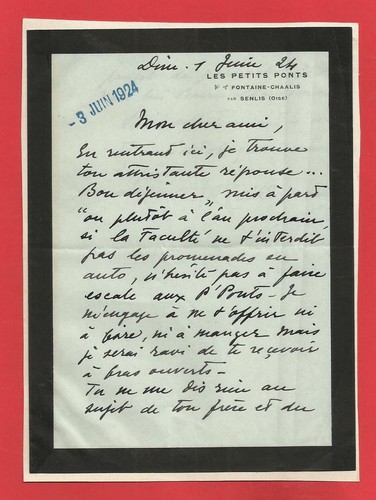 Dim. 1 Juin 24
LES PETITS PONTS
FONTAINE-CHAALIS
PAR SENLIS (OISE)
- 3 JUIN 1924
Mon cher ami,
En rentrant ici, je trouve
ton attristante réponse...
Bon déjeuner, mis à part
"ou plutôt à l'an prochain,
si la Faculté ne t'interdit
pas les promenades en
auto, n'hésite pas à faire
escale aux Pts Ponts - Je
m'engage à ne t'offrir ni
à boire, ni à manger mais
je serai ravi de te recevoir
à bras ouverts -
Tu ne me dis rien au
sujet de ton frère et du